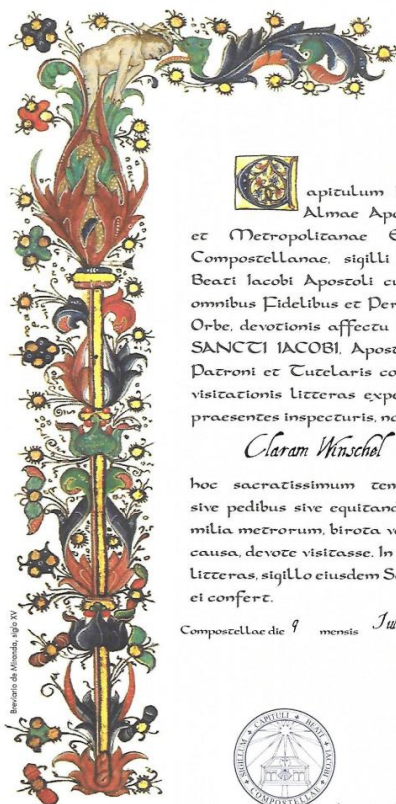 Capitulum
Almae Apo
et Metropolitanae E
Compostellanae, sigilli
Beati Iacobi Apostoli cu
omnibus Fidelibus et Per
Orbe, devotionis affectu
SANCTI IACOBI, Apost
Patroni et Tutelaris co
visitationis litteras expe
praesentes inspecturis, no
Claram Winschel
hoc sacratissimum tem
sive pedibus sive equitand
milia metrorum, birota v
causa, devote visitasse. In
litteras, sigillo eiusdem S
ei confert.
Compostellae die 9 mensis Iu
SIGILLUM CAPITULI BEATI IACOBI COMPOSTELLAE
Breviario de Miranda, siglo XV